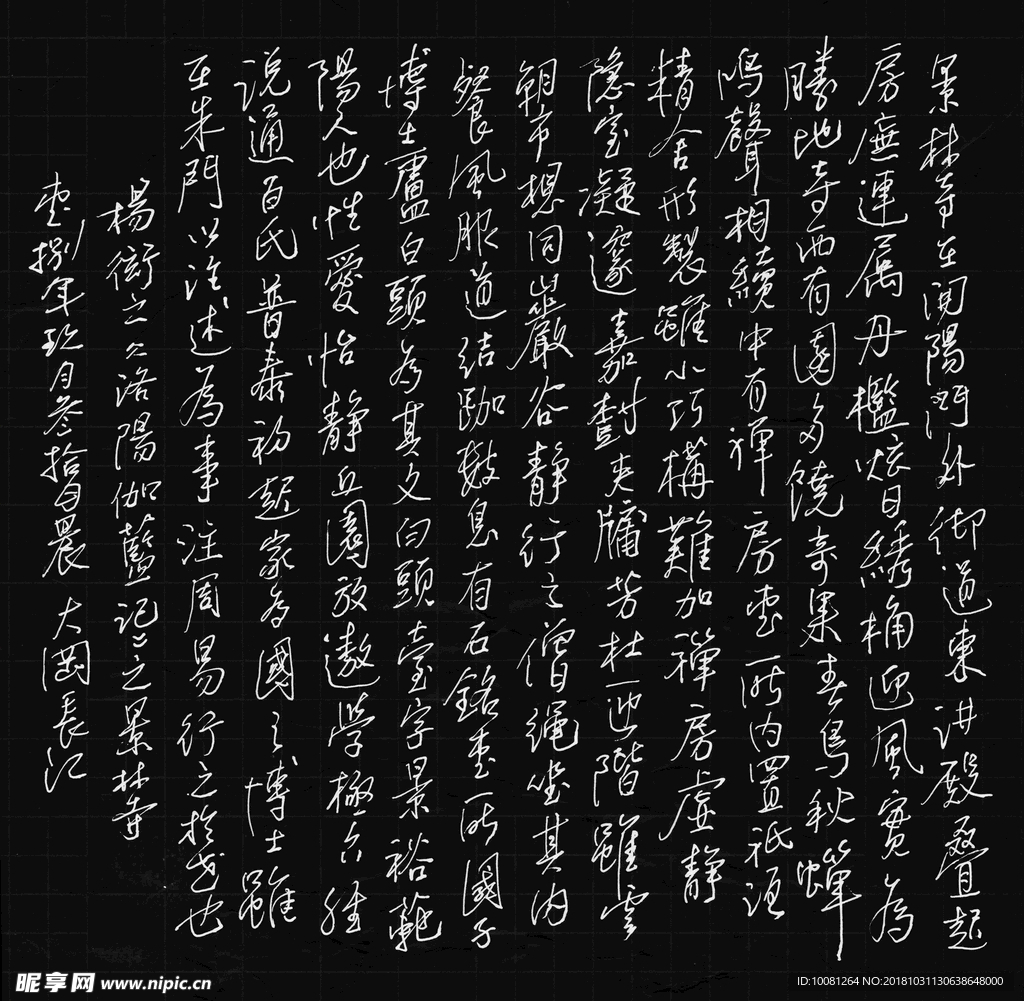 景林寺在開陽門外御道東講殿疊起
房廡連屬丹檻炫日繡桷迎風實為
勝地寺西有園多饒奇果春鳥秋蟬
鳴聲相續中有禪房壹所內置祇洹
精舍形製雖小巧構難加禪房虛靜
隱室凝邃嘉樹夾牖芳杜迎階雖云
朝市想同巖谷靜行之僧繩坐其內
餐風服道結跏數息有石銘壹所國子
博士盧白頭為其文白頭壹字景裕范
陽人也性愛恬靜丘園放遨學極六經
说通百氏普泰初起家為國子博士雖
在朱門以注述為事注周易行之於世也
楊衒之之洛陽伽藍記之景林寺
壹捌年玖月叁拾日晨 大國長江
昵享网 www.nipic.cn
ID:10081264 NO:20181031130638648000